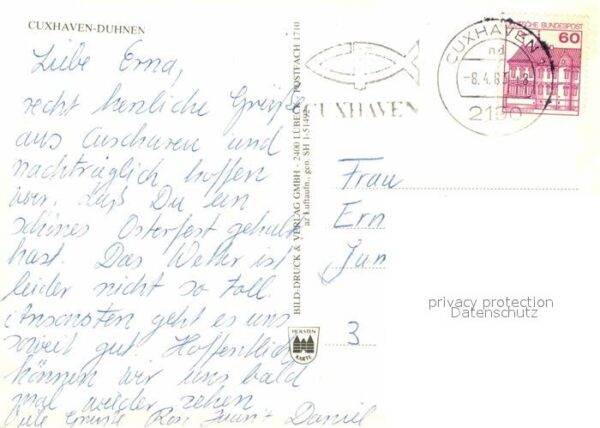 CUXHAVEN-DUHNEN
Liebe Erna,
recht herzliche Grüße
aus Cuxhaven und
nachträglich hoffen
wir, daß Du ein
schönes Osterfest gehabt
hast. Das Wetter ist
leider nicht so toll.
Ansonsten geht es uns
soweit gut. Hoffentlich
können wir uns bald
mal wieder sehen
Viele Grüße Daniel
BILD-DRUCK & VERLAG GMBH - 2400 LÜBECK - POSTFACH 1710
az Luftaufn., gen. SH 1-51492
HOLSTEN
KARTE
CUXHAVEN
CUXHAVEN
nd
-8.4.8
2190
DEUTSCHE BUNDESPOST
60
Frau
Ern
Jun
3
privacy protection
Datenschutz